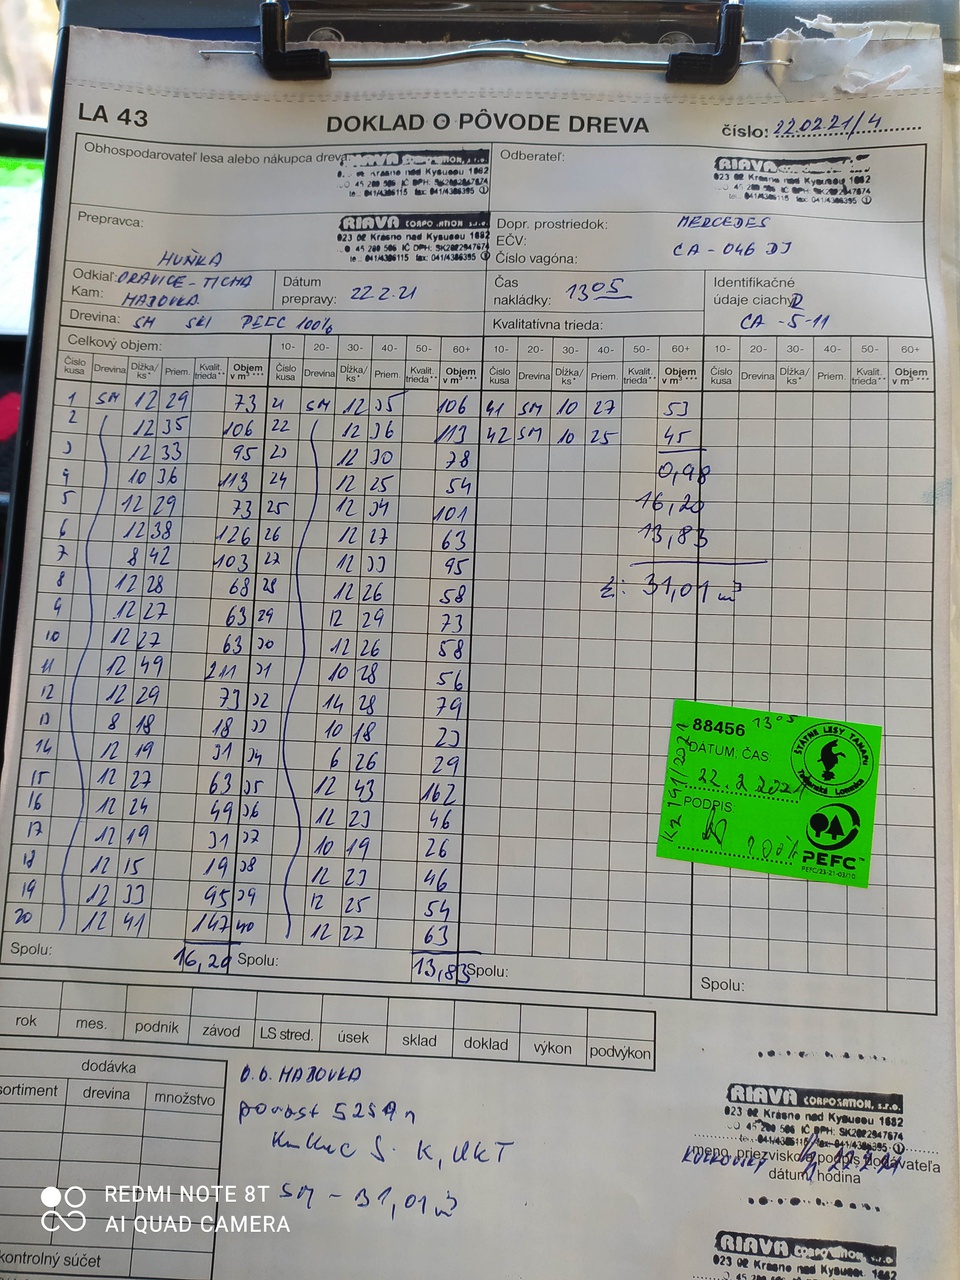 LA 43
DOKLAD O PÔVODE DREVA
číslo: 220221/4
Obhospodarovateľ lesa alebo nákupca dreva:
RIAVA CORPORATION, s.r.o.
023 02 Krásno nad Kysucou 1682
Odberateľ:
RIAVA
023 02 Krásno nad Kysucou 1682
Prepravca:
HUŇKA
RIAVA CORPORATION s.r.o.
023 02 Krásno nad Kysucou 1682
tel.: 041/4386115 fax: 041/4386395
Dopr. prostriedok: MERCEDES
EČV: CA - 046 DJ
Číslo vagóna:
Odkiaľ: ORAVICE - TICHA
Kam: HAJOVKA
Dátum prepravy: 22.2.21
Čas nakládky: 13 05
Identifikačné údaje ciachy
CA - 5-11
Drevina: SM SRI PEFC 100%
Kvalitatívna trieda:
Celkový objem: 10- 20- 30- 40- 50- 60+ 10- 20- 30- 40- 50- 60+ 10- 20- 30- 40- 50- 60+
Číslo kusa Drevina Dĺžka/ks* Priem. Kvalit. trieda** Objem v m³ *** Číslo kusa Drevina Dĺžka/ks* Priem. Kvalit. trieda** Objem v m³ *** Číslo kusa Drevina Dĺžka/ks* Priem. Kvalit. trieda** Objem v m³ *** Číslo kusa Drevina Dĺžka/ks* Priem. Kvalit. trieda** Objem v m³ ***
1 SM 12 29 73 21 SM 12 35 106 41 SM 10 27 53
2 12 35 106 22 12 36 113 42 SM 10 25 45
3 12 33 95 23 12 30 78 0,98
4 10 36 113 24 12 25 54 16,20
5 12 29 73 25 12 34 101 13,83
6 12 38 126 26 12 27 63
7 8 42 103 27 12 33 95 Σ: 31,01 m³
8 12 28 68 28 12 26 58
9 12 27 63 29 12 29 73
10 12 27 63 30 12 26 58
11 12 49 211 31 10 28 56
12 12 29 73 32 14 28 79
13 8 18 18 33 10 18 23
14 12 19 31 34 6 26 29
15 12 27 63 35 12 43 162
16 12 24 49 36 12 23 46
17 12 19 31 37 10 19 26
18 12 15 19 38 12 23 46
19 12 33 95 39 12 25 54
20 12 41 147 40 12 27 63
Spolu: 16,20 Spolu: 13,83 Spolu: Spolu:
88456 13 05
DÁTUM: ČAS
22.2.2021
PODPIS
100%
ŠTÁTNE LESY TANAPu
Tatranská Lomnica
PEFC™
PEFC/23-21-03/10
rok mes. podnik závod LS stred. úsek sklad doklad výkon podvýkon
dodávka
sortiment drevina množstvo
O.O. HAJOVKA
porast
SM - 31,01 m³
RIAVA CORPORATION, s.r.o.
023 02 Krásno nad Kysucou 1682
meno, priezvisko a podpis dodávateľa
22.2.21
dátum, hodina
kontrolný súčet
RIAVA
023 02 Krásno nad Kysucou 1682
REDMI NOTE 8T
AI QUAD CAMERA